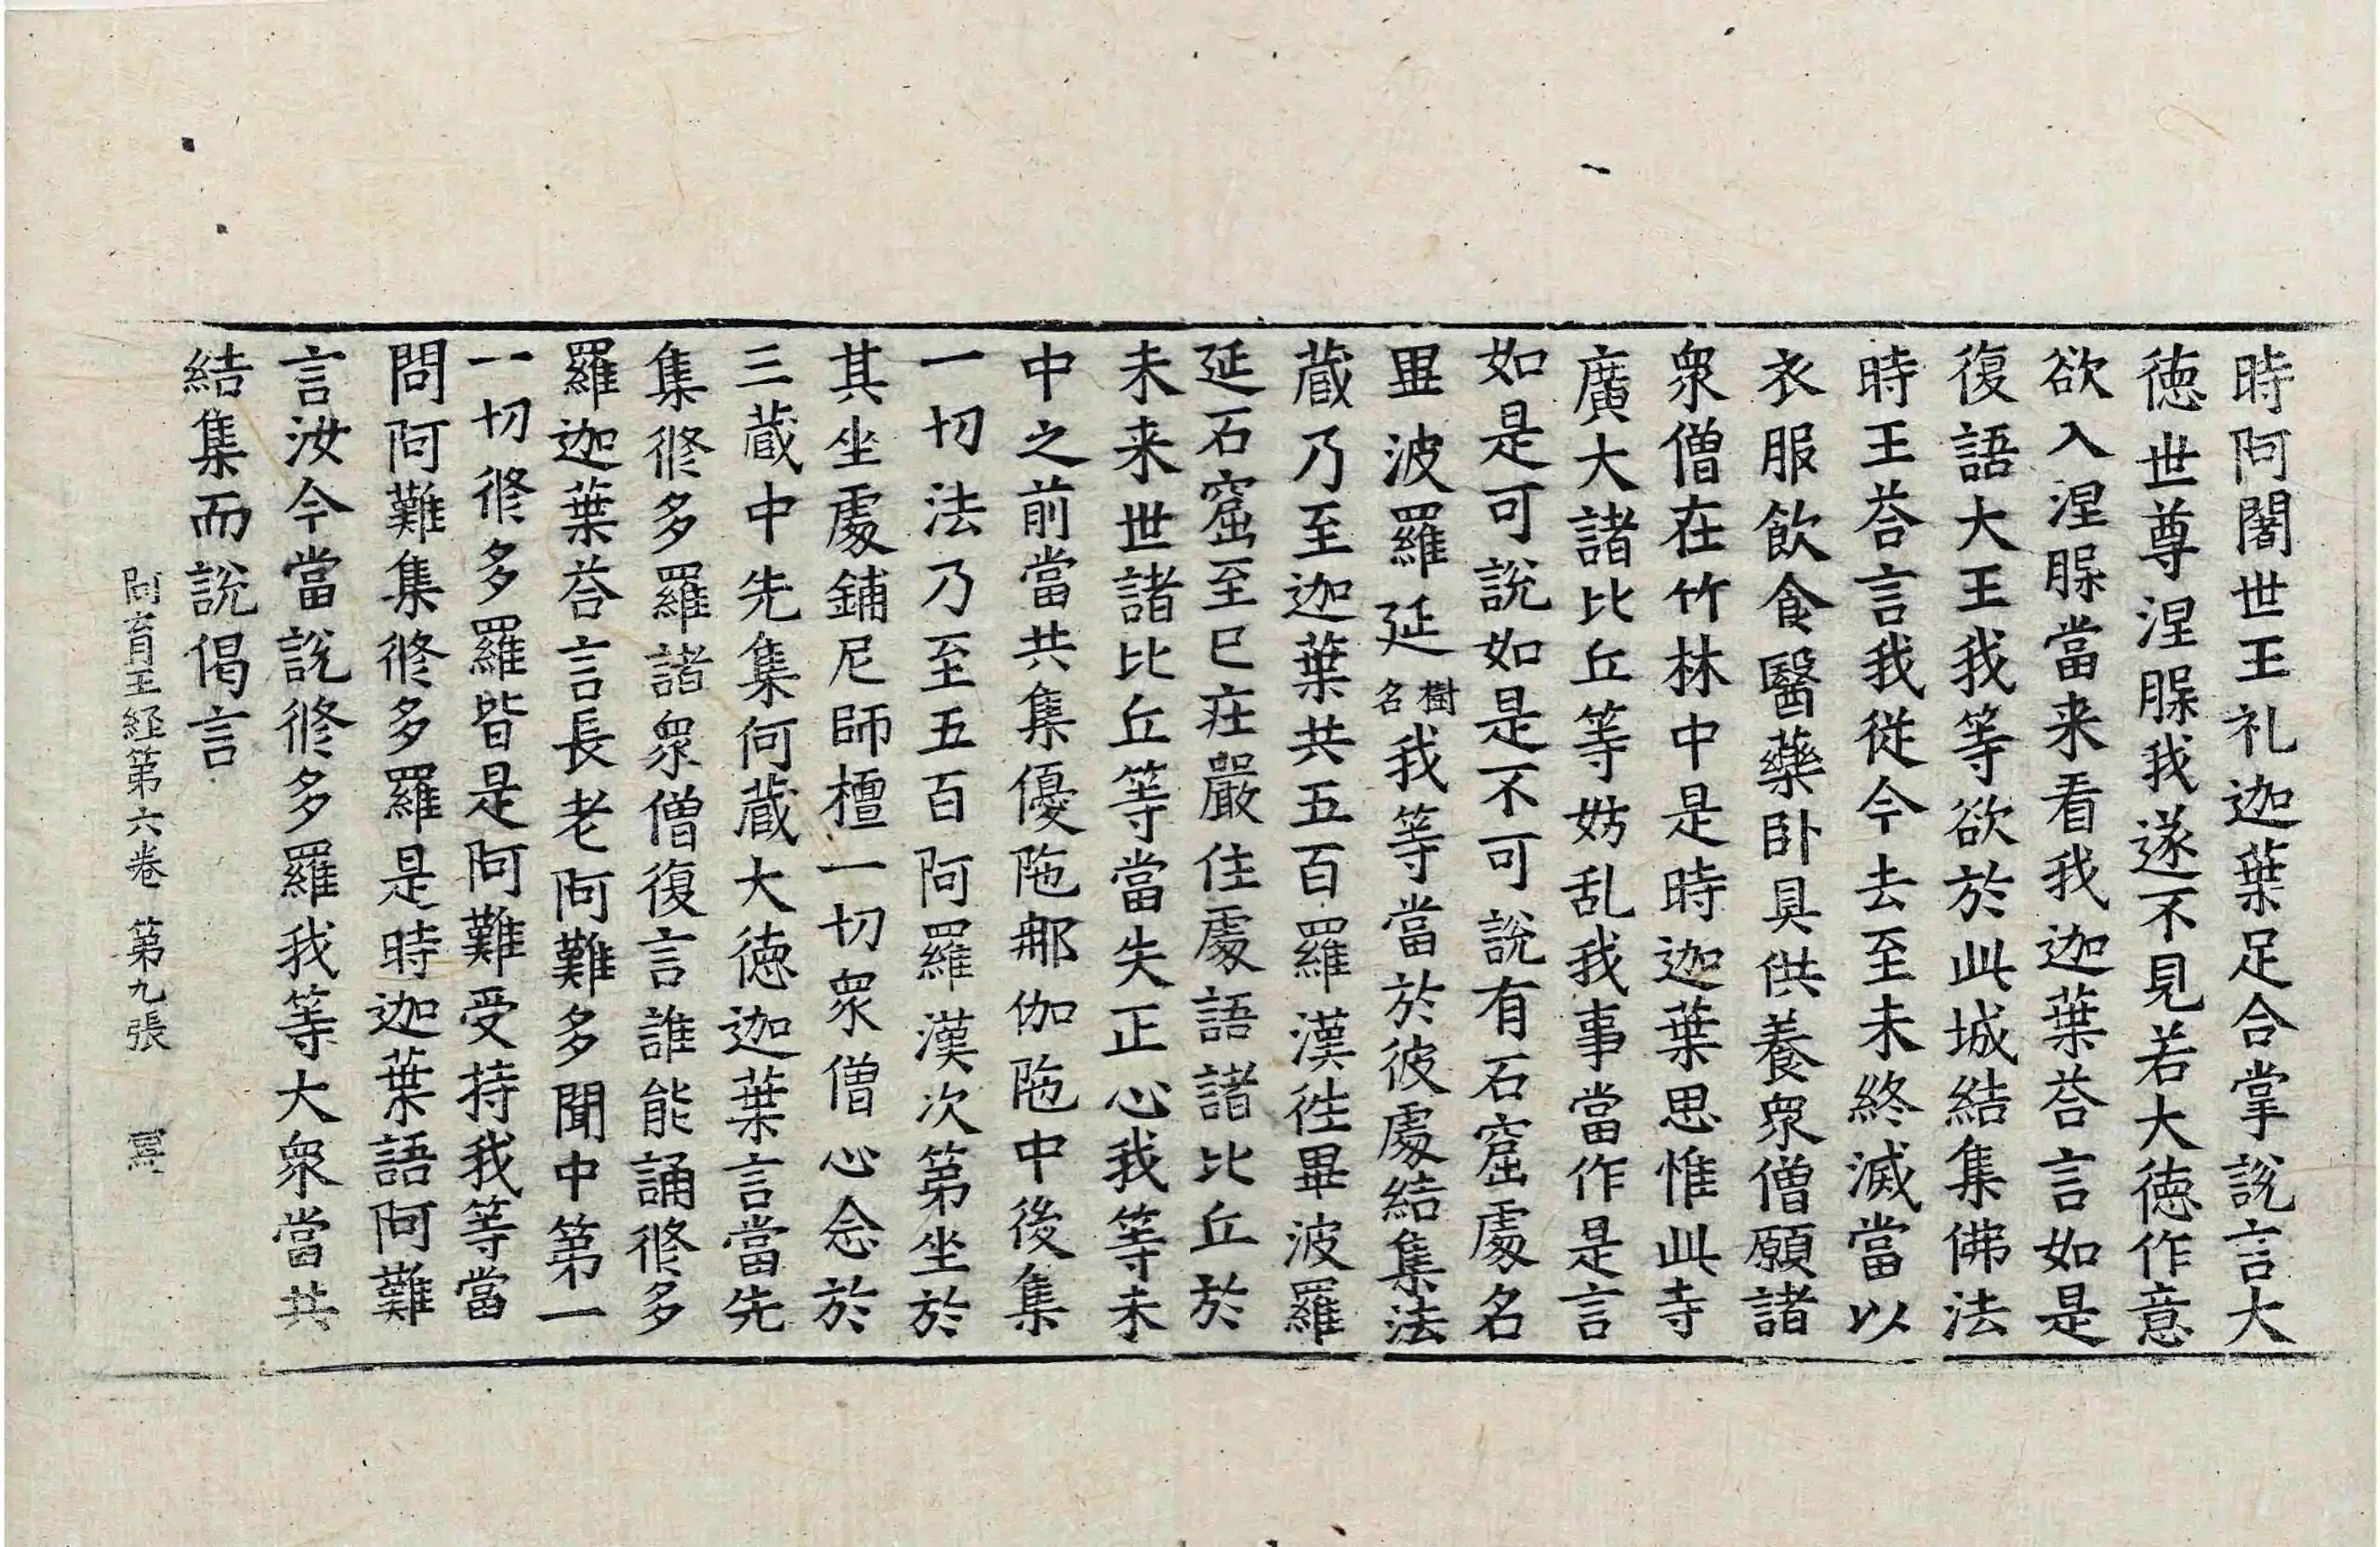 時阿闍世王礼迦葉足合掌說言大
徳世尊涅脲我遂不見若大徳作意
欲入涅脲當来看我迦葉荅言如是
復語大王我等欲於此城結集佛法
時王荅言我従今去至未終滅當以
衣服飲食醫藥卧具供養衆僧願諸
衆僧在竹林中是時迦葉思惟此寺
廣大諸比丘等妨乱我事當作是言
如是可說如是不可說有石窟處名
畢波羅延樹名我等當於彼處結集法
蔵乃至迦葉共五百羅漢徃畢波羅
延石窟至已莊嚴住處語諸比丘於
未来世諸比丘等當失正心我等未
中之前當共集優陁那伽陁中後集
一切法乃至五百阿羅漢次第坐於
其坐處鋪尼師檀一切衆僧心念於
三蔵中先集何蔵大徳迦葉言當先
集修多羅諸衆僧復言誰能誦修多
羅迦葉荅言長老阿難多聞中第一
一切修多羅皆是阿難受持我等當
問阿難集修多羅是時迦葉語阿難
言汝今當說修多羅我等大衆當共
結集而說偈言
阿育王経第六卷 第九張 冩